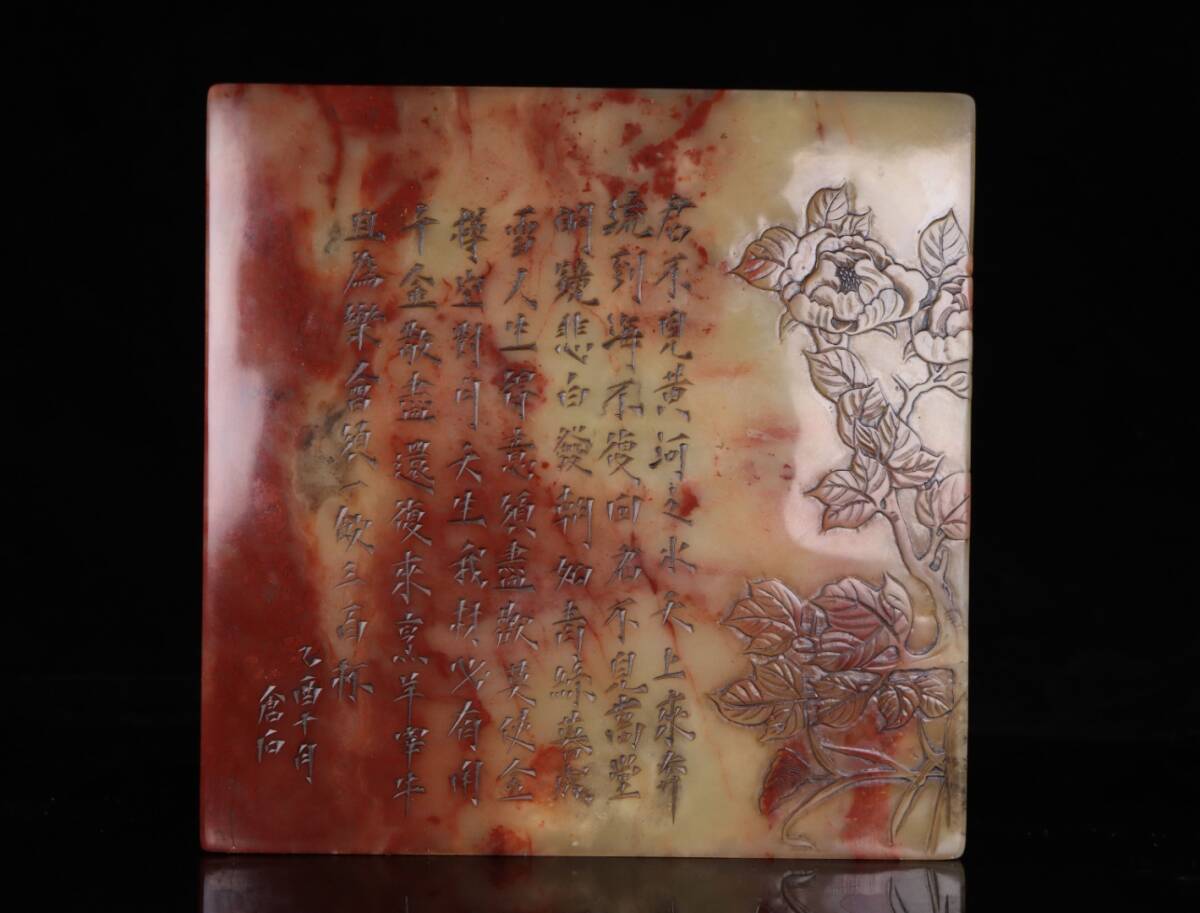 君不見黃河之水天上來奔
流到海不復回君不見高堂
明鏡悲白發朝如青絲暮成
雪人生得意須盡歡莫使金
樽空對月天生我材必有用
千金散盡還復來烹羊宰牛
且為樂會須一飲三百杯
乙酉年月
倉石